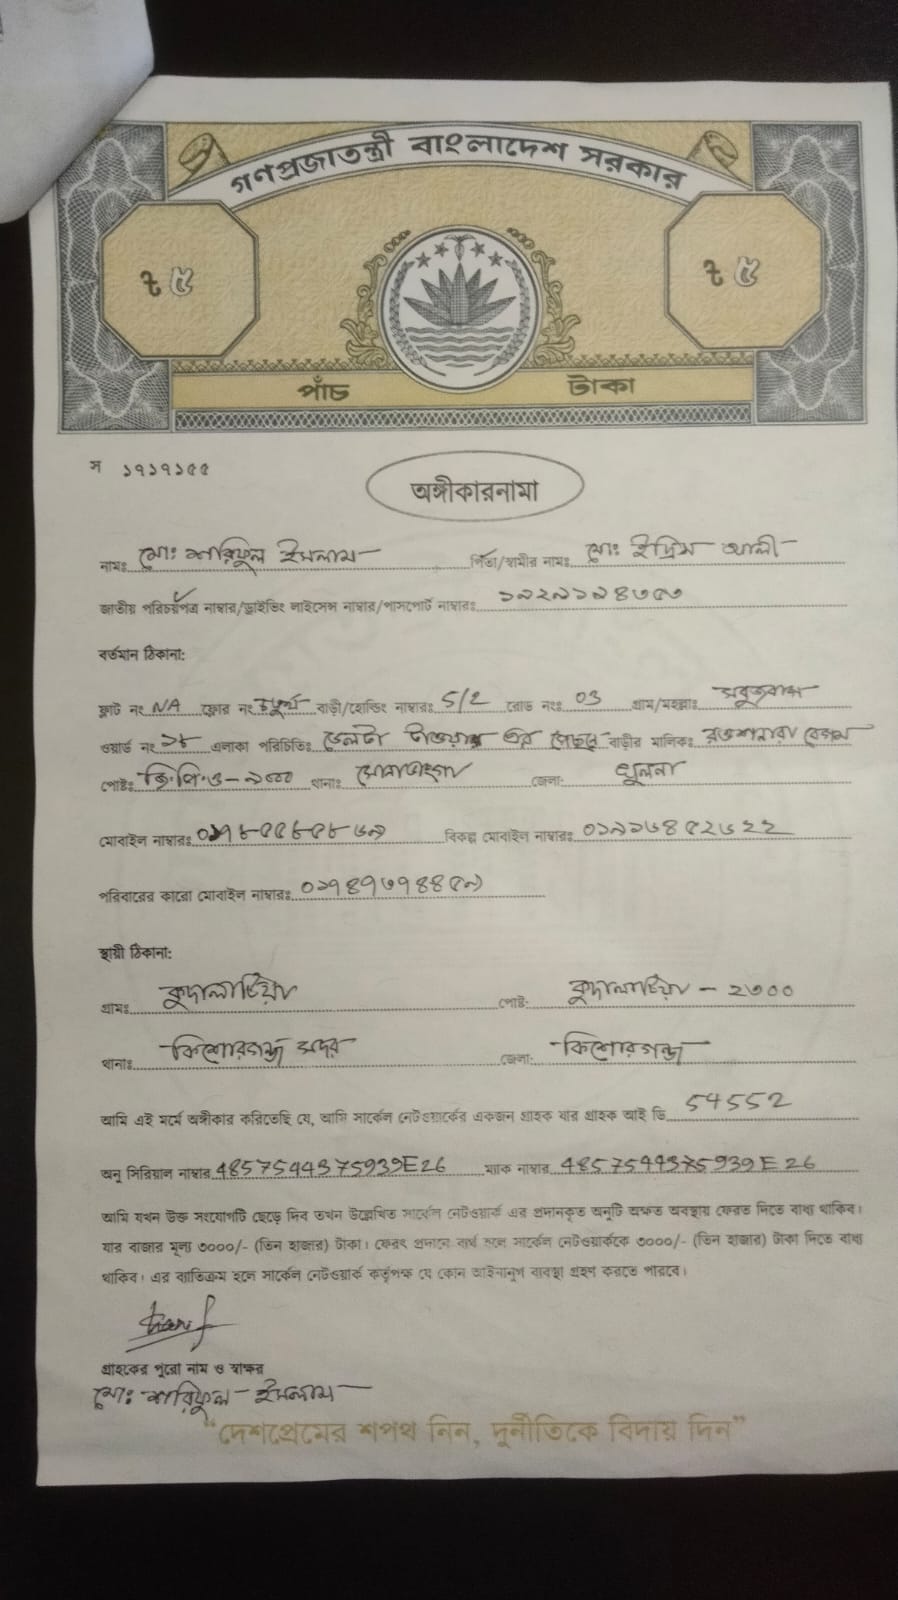 গণপ্রজাতন্ত্রী বাংলাদেশ সরকার
৳ ৫ ৳ ৫
পাঁচ টাকা
স ১৭১৭১৫৫
অঙ্গীকারনামা
নামঃ মোঃ শরিফুল ইসলাম পিতা/স্বামীর নামঃ মোঃ ইদ্রিস আলী
জাতীয় পরিচয়পত্র নাম্বার/ড্রাইভিং লাইসেন্স নাম্বার/পাসপোর্ট নাম্বারঃ
বর্তমান ঠিকানা:
ফ্লাট নং NA ফ্লোর নং চতুর্থ বাড়ী/হোল্ডিং নাম্বারঃ 5/2 রোড নংঃ 03 গ্রাম/মহল্লাঃ সবুজবাগ
ওয়ার্ড নং ১৮ এলাকা পরিচিতিঃ ডেলটা টাওয়ার এর পেছনে বাড়ীর মালিকঃ রওশনারা বেগম
পোষ্টঃ জি.পি.ও-৯০০০ থানাঃ সোনাডাঙ্গা জেলা: খুলনা
মোবাইল নাম্বারঃ বিকল্প মোবাইল নাম্বারঃ
পরিবারের কারো মোবাইল নাম্বারঃ
স্থায়ী ঠিকানা:
গ্রামঃ পোষ্ট: ২৩০০
থানাঃ কিশোরগঞ্জ সদর জেলা: কিশোরগঞ্জ
আমি এই মর্মে অঙ্গীকার করিতেছি যে, আমি সার্কেল নেটওয়ার্কের একজন গ্রাহক যার গ্রাহক আই ডি 54552
অনু সিরিয়াল নাম্বার 4857544375939E26 ম্যাক নাম্বার 4857544375939E26
আমি যখন উক্ত সংযোগটি ছেড়ে দিব তখন উল্লেখিত সার্কেল নেটওয়ার্ক এর প্রদানকৃত অনুটি অক্ষত অবস্থায় ফেরত দিতে বাধ্য থাকিব।
যার বাজার মূল্য ৩০০০/- (তিন হাজার) টাকা। ফেরৎ প্রদানে ব্যর্থ হলে সার্কেল নেটওয়ার্ককে ৩০০০/- (তিন হাজার) টাকা দিতে বাধ্য
থাকিব। এর ব্যতিক্রম হলে সার্কেল নেটওয়ার্ক কর্তৃপক্ষ যে কোন আইনানুগ ব্যবস্থা গ্রহণ করতে পারবে।
গ্রাহকের পুরো নাম ও স্বাক্ষর
মোঃ শরিফুল ইসলাম
"দেশপ্রেমের শপথ নিন, দুর্নীতিকে বিদায় দিন"